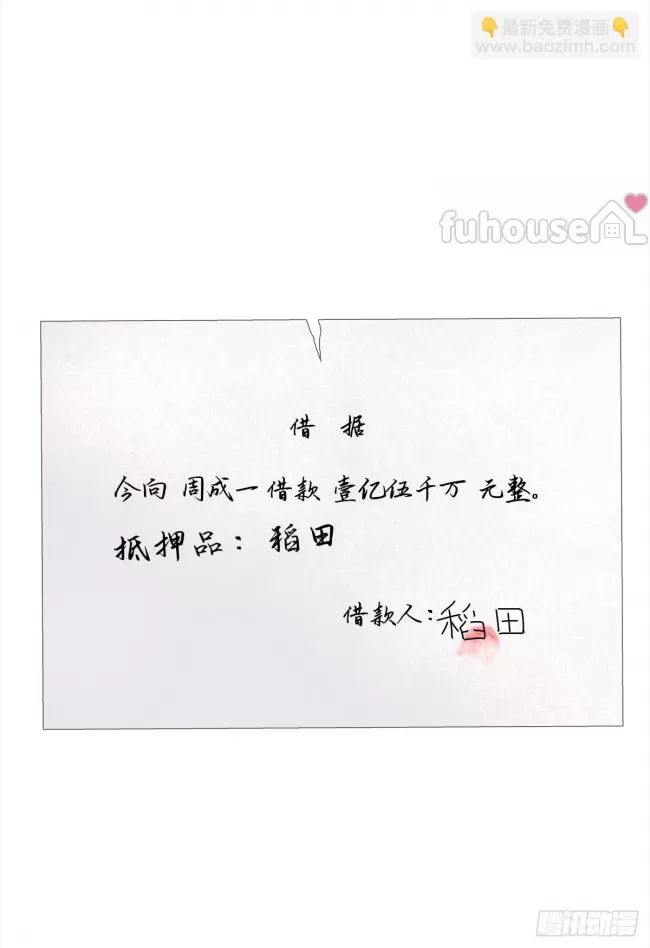 👇最新免费漫画👇
www.baozimh.com
fuhouse画
借 据
今向 周成一 借款 壹亿伍千万 元整。
抵押品：稻田
借款人：稻田
腾讯动漫